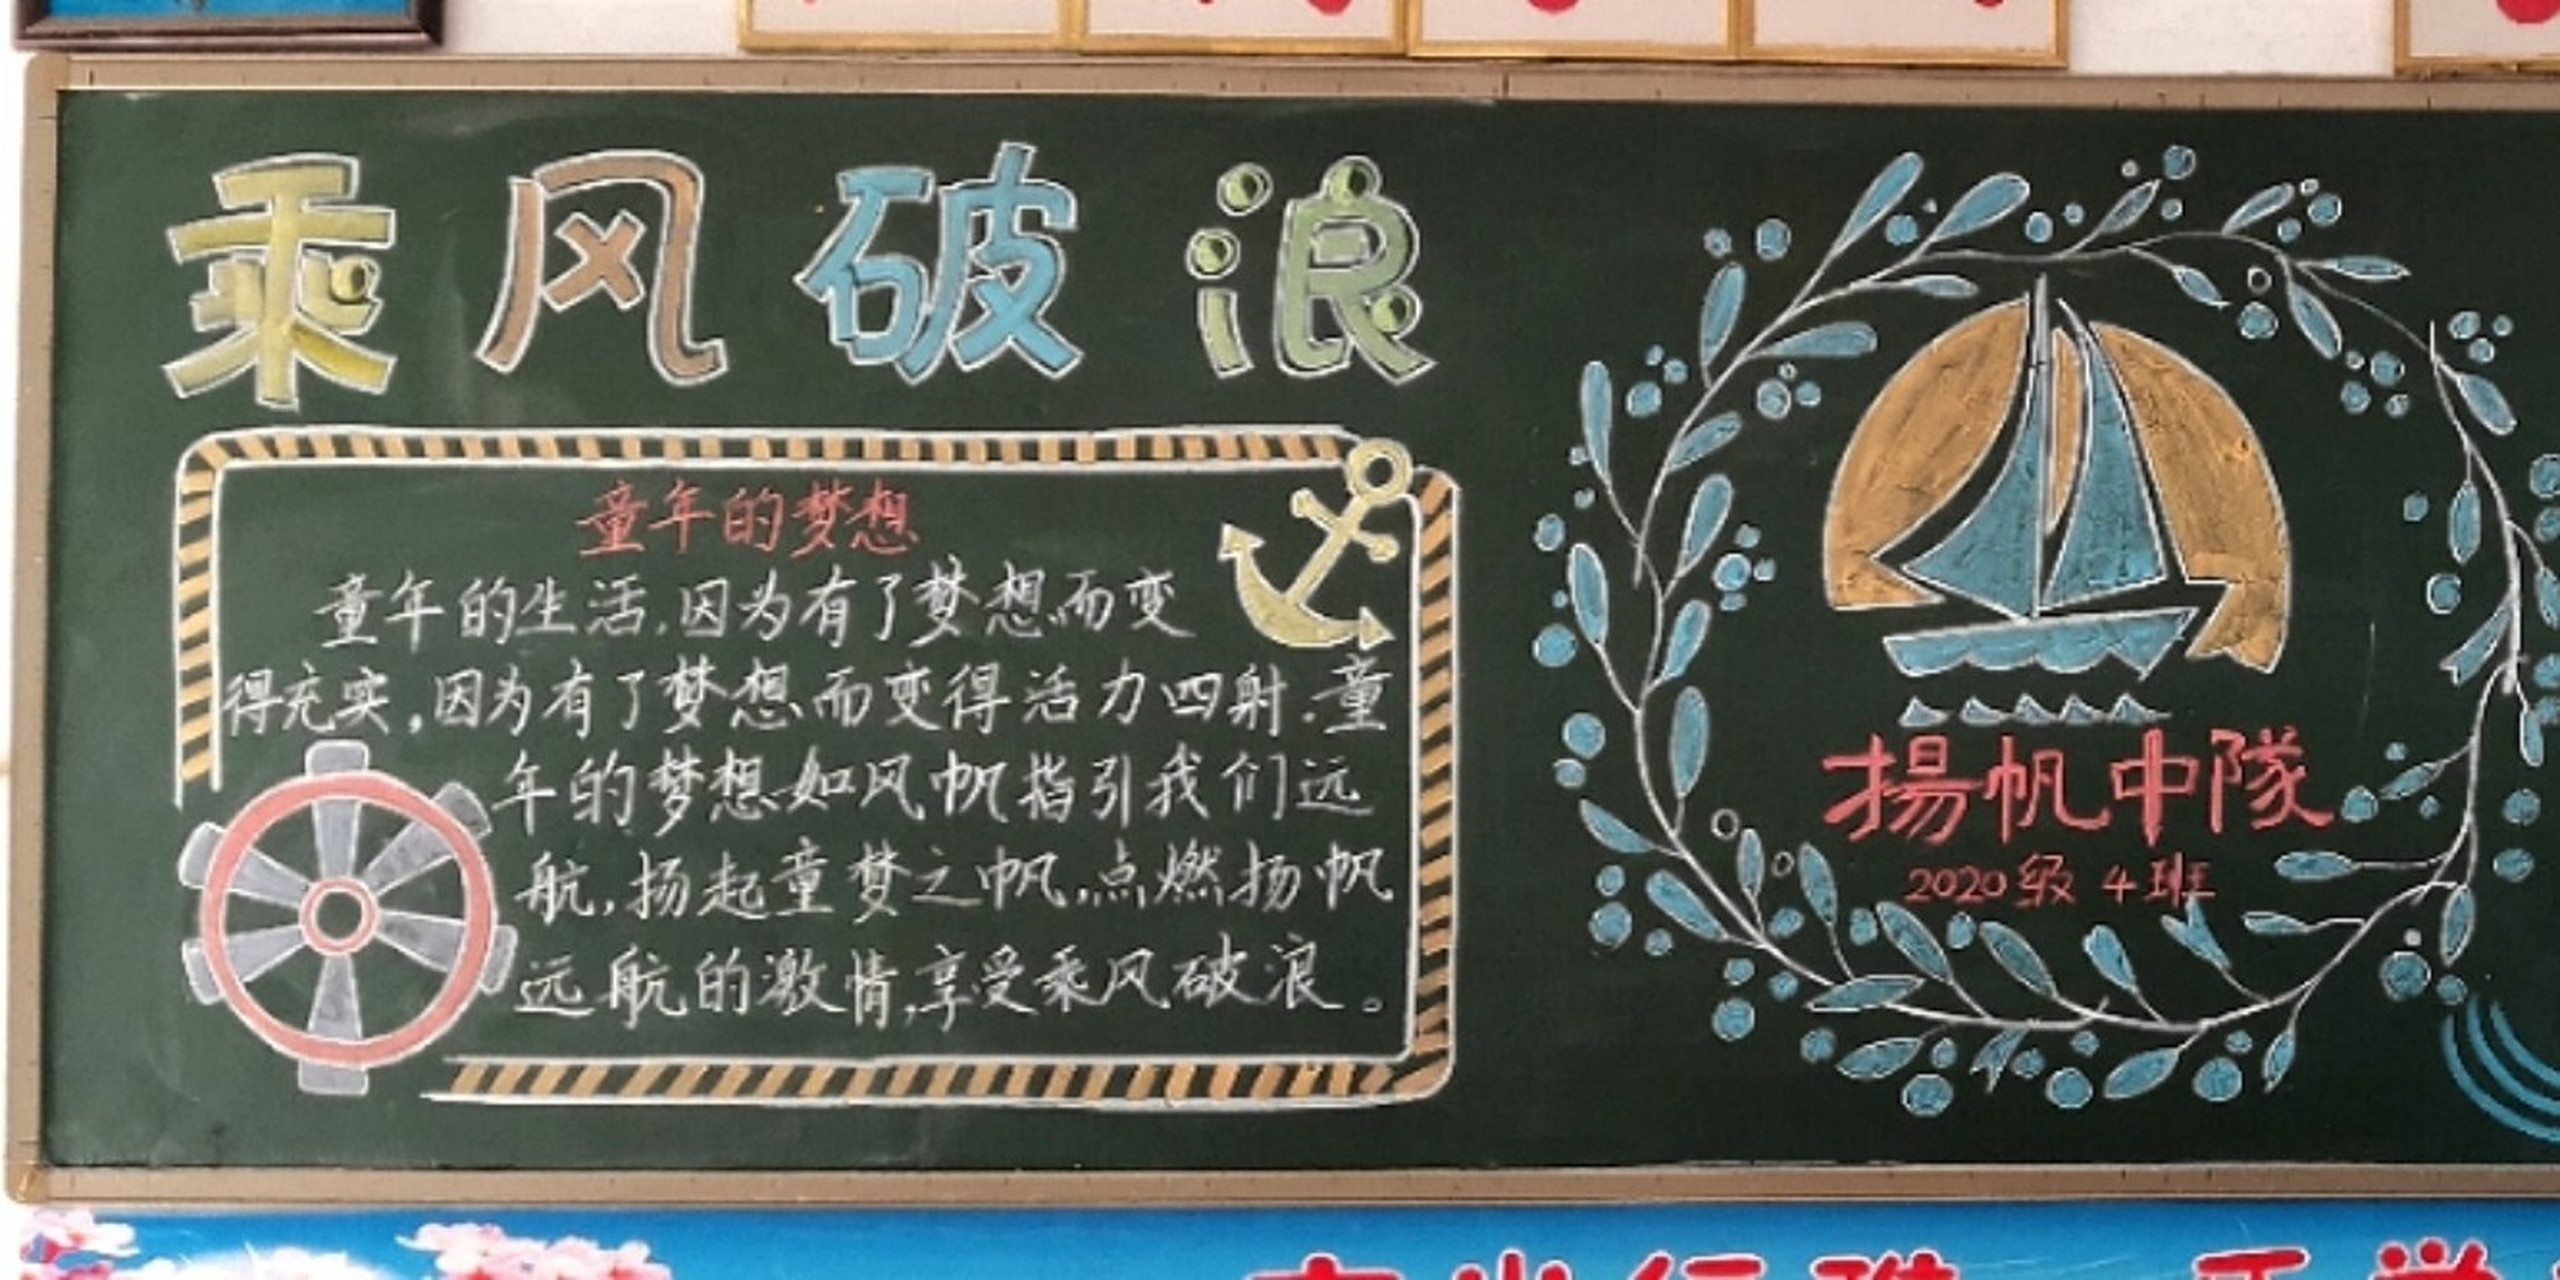 乘风破浪
童年的梦想
童年的生活,因为有了梦想而变
得充实,因为有了梦想而变得活力四射.童
年的梦想如风帆指引我们远
航,扬起童梦之帆,点燃扬帆
远航的激情,享受乘风破浪。
揚帆中隊
2020级 4班